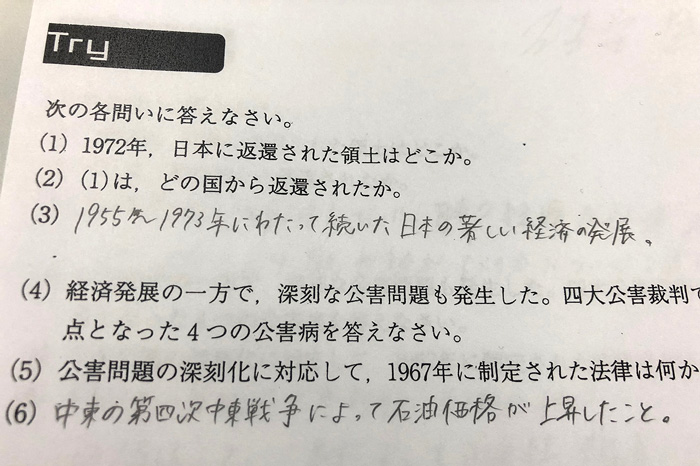 Try
次の各問いに答えなさい。
(1) 1972年，日本に返還された領土はどこか。
(2) (1)は，どの国から返還されたか。
(3) 1955年〜1973年にわたって続いた日本の著しい経済の発展。
(4) 経済発展の一方で，深刻な公害問題も発生した。四大公害裁判で
点となった４つの公害病を答えなさい。
(5) 公害問題の深刻化に対応して，1967年に制定された法律は何か
(6) 中東の第四次中東戦争によって石油価格が上昇したこと。